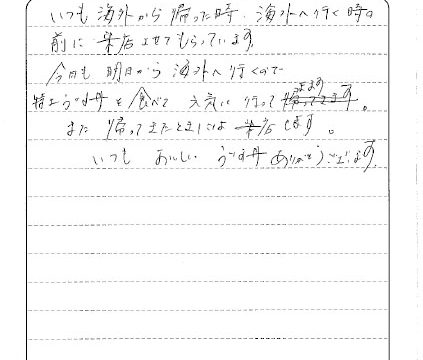 いつも海外から帰った時、海外へ行く時の
前に来店させてもらっています。
今日も明日から海外へ行くので
特上うな丼を食べて元気に行って来ます。
また帰ってきたときには来店します。
いつもおいしいうな丼ありがとうございます